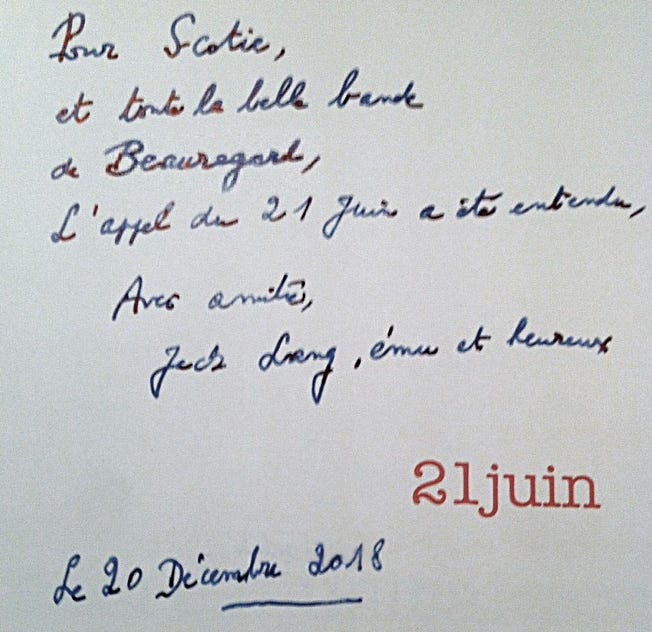 Pour Scotie,
et toute la belle bande
de Beauregard,
L'appel du 21 Juin a été entendu,
Avec amitié,
Jack Lang, ému et heureux
21juin
Le 20 Décembre 2018